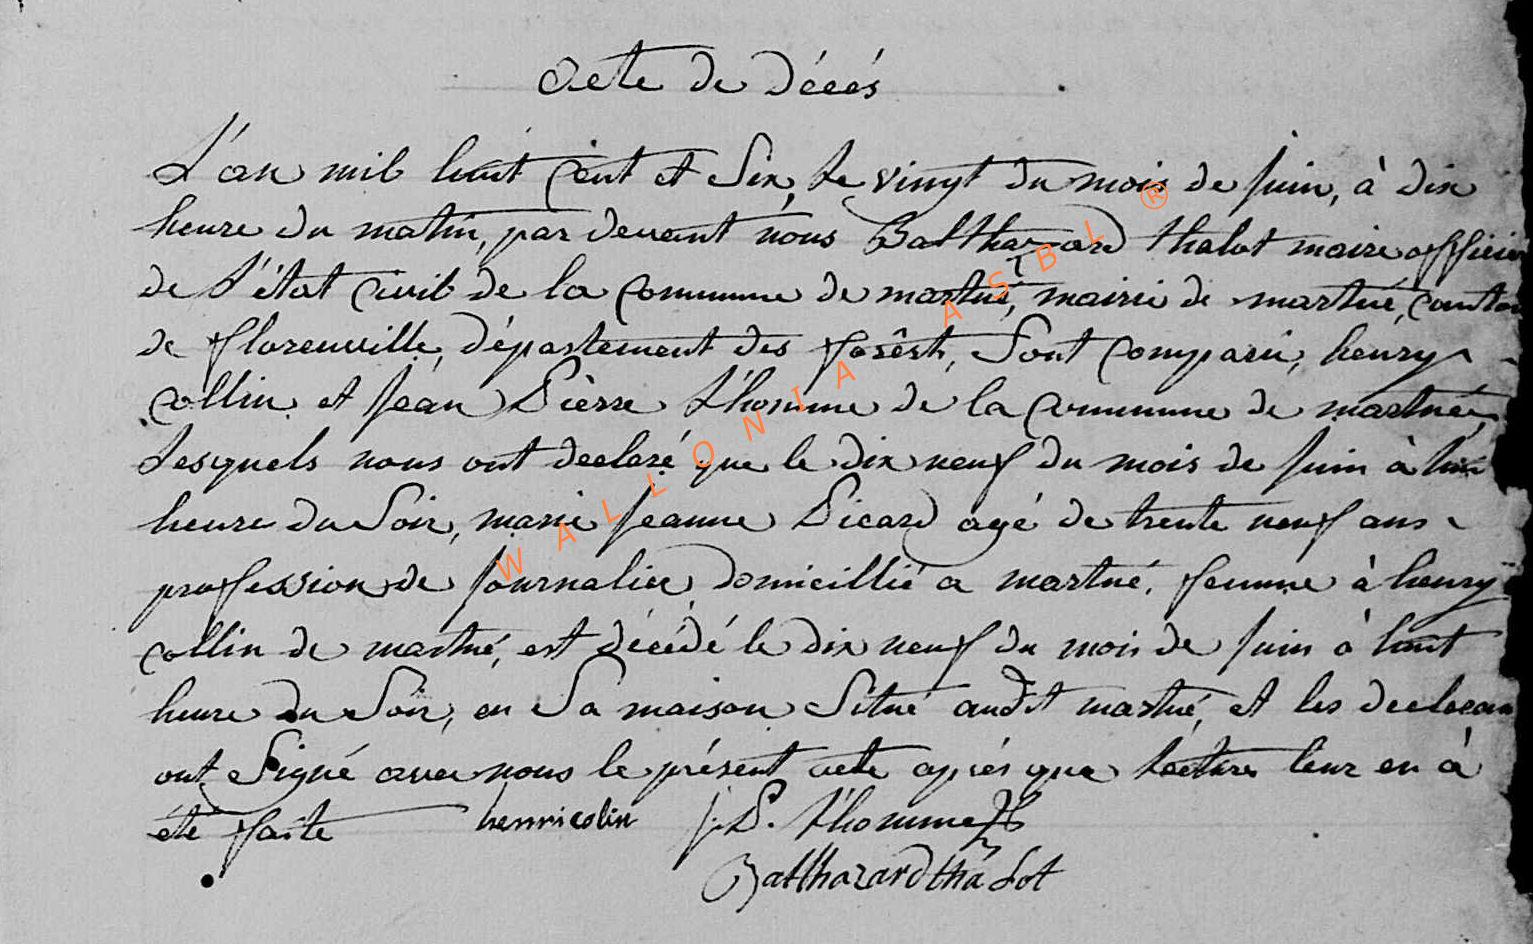 Acte de Décés
L'an mil huit Cent et Six, Le vingt du mois de Juin, à dix
heure du matin, par devant nous Balthazard thalot maire officier
de L'état Civil de la Commune de martué, mairie de martué, Canton
de florenville, département des forêts, Sont Comparu, henry
Collin et Jéan Pièrre L'homme de la Commune de martué,
Lesquels nous ont declaré que le dix neuf du mois de Juin à huit
heure du Soir, marie Jeanne Picard agé de trente neuf ans
profession de Journalier domicillié a martué, femme à henry
Collin de martué, est décédé le dix neuf du mois de Juin à huit
heure du Soir, en Sa maison Situé audit martué, et les declaran
ont Signé avec nous le présent acte après que lécture leur en à
été faite henricolin J. P. L'homme
Balthazard thalot
WALLONIA ASBL ®